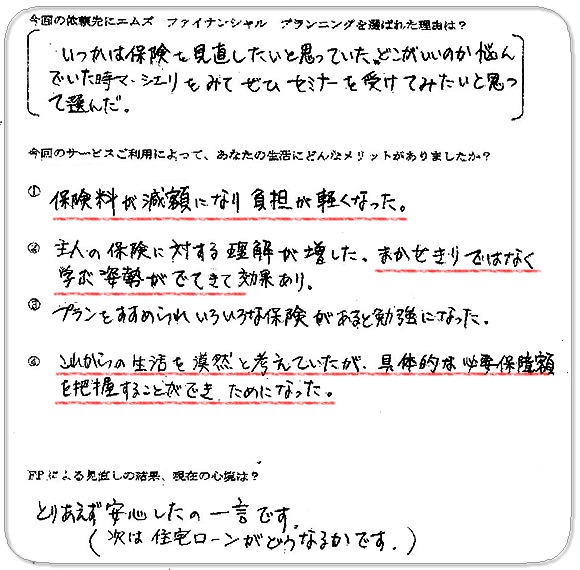 今回の依頼先にエムズ ファイナンシャル プランニングを選ばれた理由は?
いつかは保険を見直したいと思っていた。どこがいいのか悩ん
でいた時マ・シェリをみてぜひセミナーを受けてみたいと思っ
て選んだ。
今回のサービスご利用によって、あなたの生活にどんなメリットがありましたか?
① 保険料が減額になり負担が軽くなった。
② 主人の保険に対する理解が増した。まかせきりではなく
学ぶ姿勢がでてきて効果あり。
③ プランをすすめられいろいろな保険があると勉強になった。
④ これからの生活を漠然と考えていたが、具体的な必要保障額
を把握することができ、ためになった。
FPによる見直しの結果、現在の心境は?
とりあえず安心したの一言です。
(次は住宅ローンがどうなるかです。)